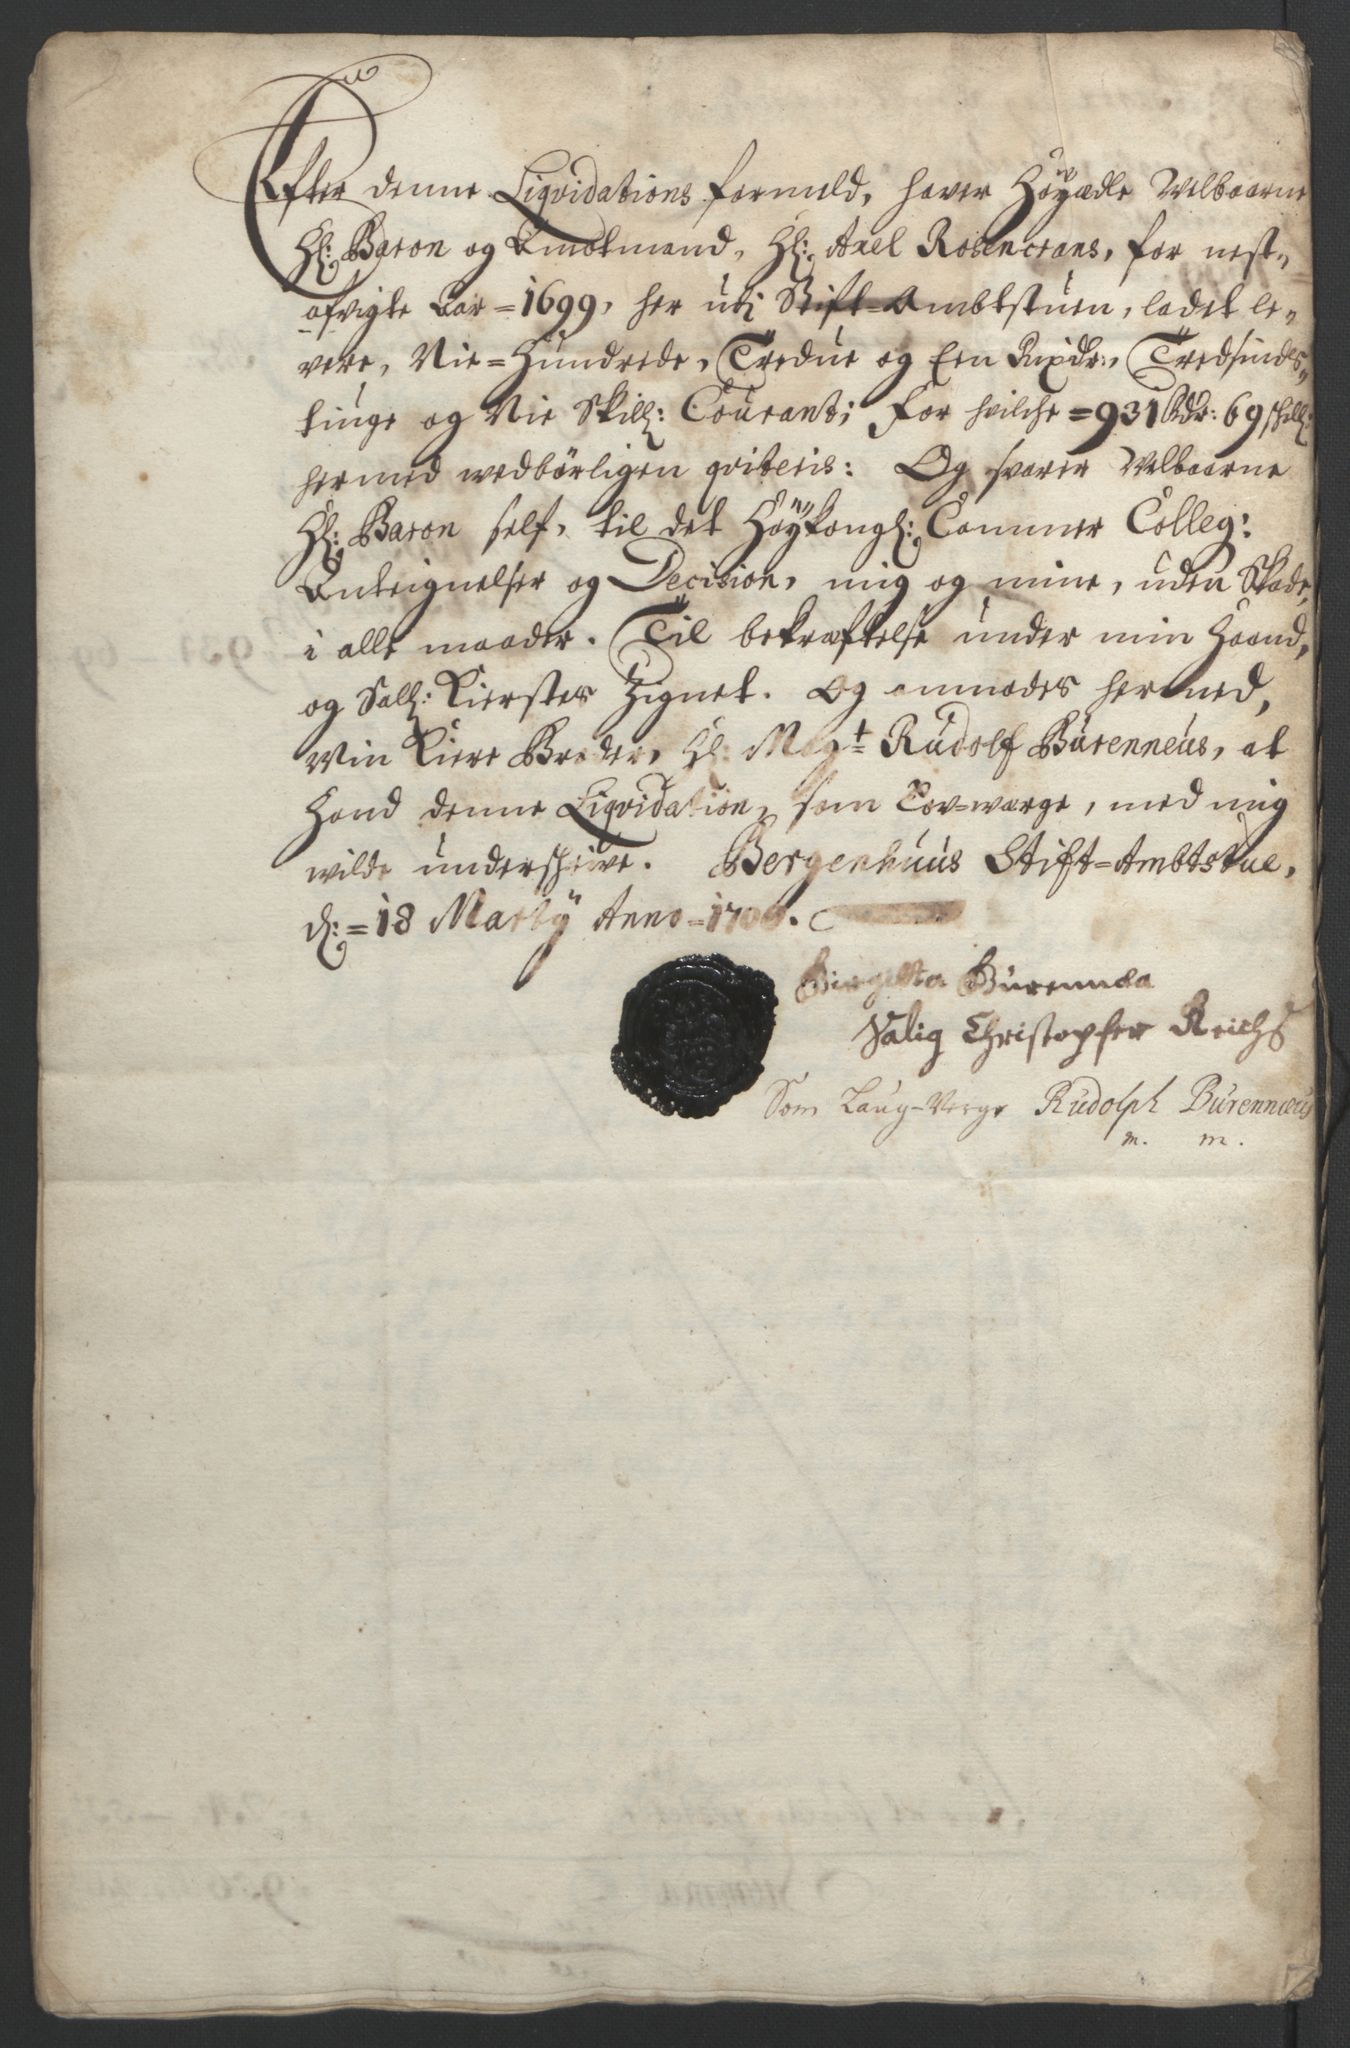 Efter denne Liqvidations formeld, haver Høyædle Welbaarne
Hl: Baron og Ambtmand, Hl: Axel Rosencrans, for nest-
afvigte Aar = 1699, her uti Stift-Ambtstuen, ladet le-
vere, Nie=Hundrede, Tredve og Een Rixdr:, Tredsinds-
tiuge og Nie Skill: Courant; For hvilche = 931 Rdr: 69 skill:
hermed wedbørligen qviteris: Og svarer Welbaarne
Hl: Baron self, til det Høykongl: Cammer Colleg:
Antegnelser og Decision, mig og mine, uden Skade,
i alle maader. Til bekræftelse under min Haand,
og Sall: Kierstes Zignet. Og anmodes hermed,
Min Kiere Broder, Hl: Mag:t Rudolf Bürenneus, at
Hand denne Liqvidation, som Lov-wærge, med mig
wilde underschrive. Bergenhuus Stift=Ambtstue,
d: = 18 Martÿ Anno = 1700.
Birgitta Bürennæa
Salig Christopfer Reichs
Som Laug-Verge Rudolph Bürennæus
m. m.